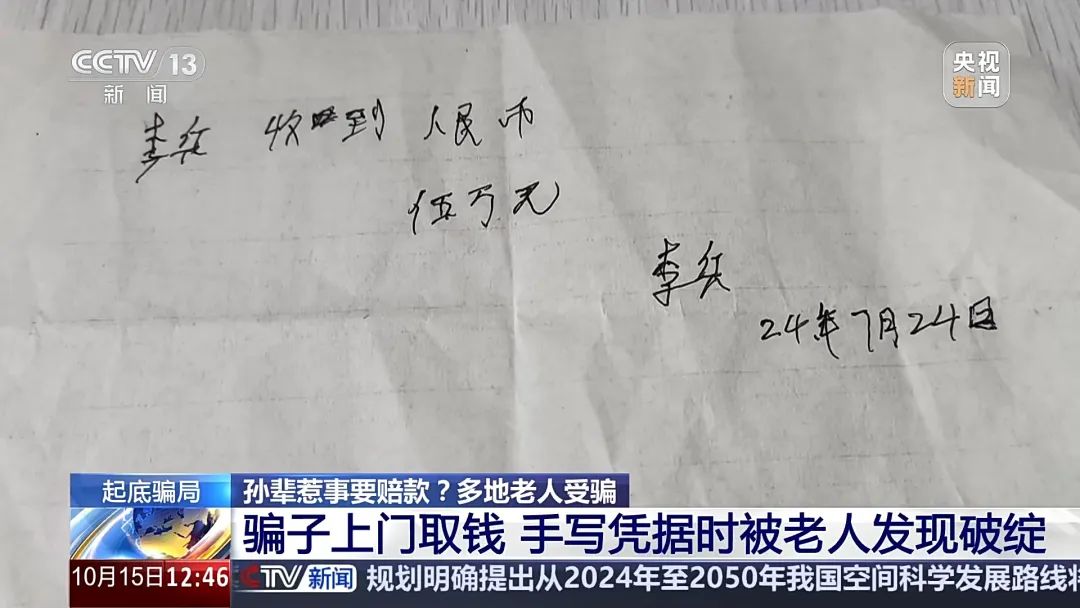 CCTV 13
新闻
央视
新闻
李兵 收到 人民币
伍万元
李兵
24年7月24日
起底骗局
孙辈惹事要赔款？多地老人受骗
骗子上门取钱 手写凭据时被老人发现破绽
10月15日12:46
CCTV新闻 规划明确提出从2024年至2050年我国空间科学发展路线将